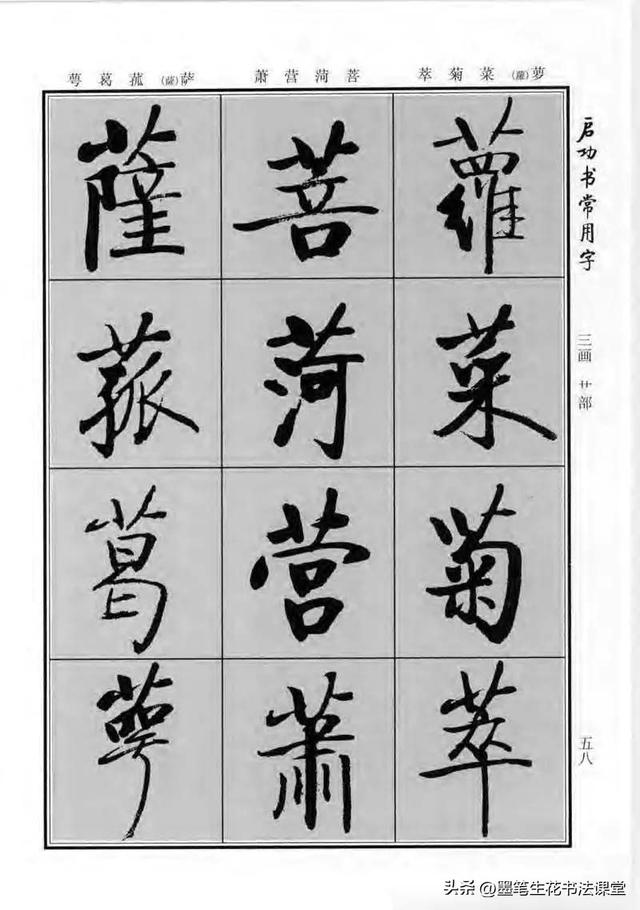 萝(蘿)菜菊萃
菩菏营萧
萨(薩)菰葛萼
启功书常用字
三画 艹部
五八
蘿
菜
菊
萃
菩
菏
营
萧
薩
菰
葛
萼
头条 @墨笔生花书法课堂